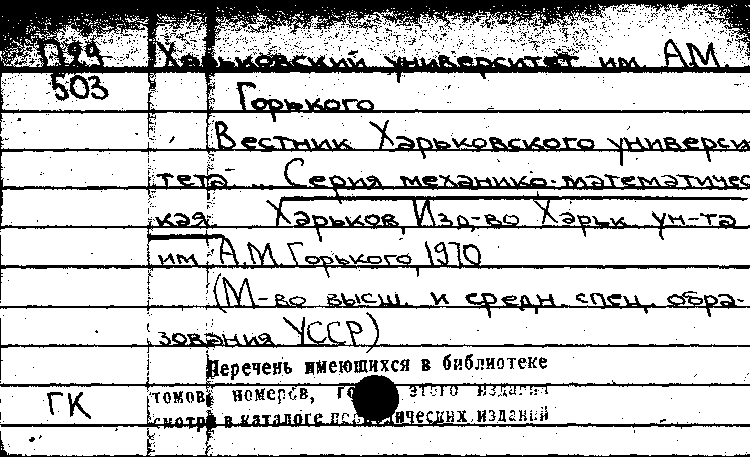 П24 Харьковский университет им. А.М.
503 Горького
Вестник Харьковского универси-
тета ... Серия механико-математичес-
кая Харьков, Изд-во Харьк. ун-та
им. А.М. Горького, 1970
(М-во высш. и средн. спец. обра-
зования УССР)
Перечень имеющихся в библиотеке
томов, номеров, этого издания
смотри в каталоге периодических изданий
ГК